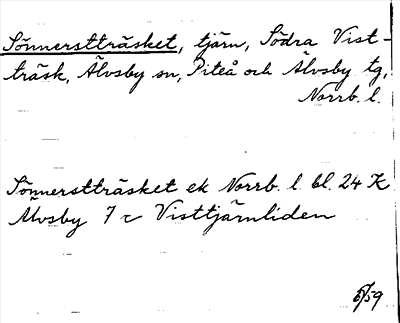 Sönnerstträsket, tjärn, Södra Vist-
träsk, Älvsby sn, Piteå och Älvsby tg,
Norrb. l.
Sönnerstträsket ek Norrb. l bl. 24 K
Älvsby 7 c Visttjärnliden
5/59